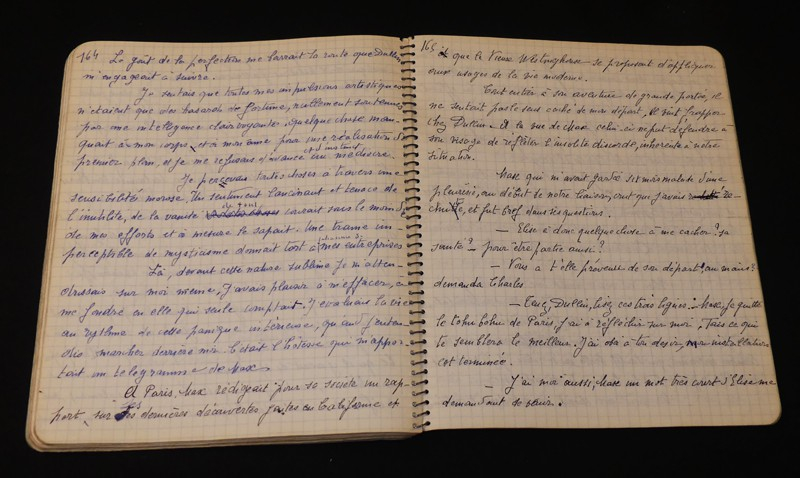 164
Le goût de la perfection me barrait la route que Dullin
m'engageait à suivre.
Je sentais que toutes mes impressions artistiques
n'étaient que des hasards de fortune, nullement soutenus
par une intelligence clairvoyante. Quelque chose man-
quait à mon corps, et à mon âme pour une réalisation de
premier plan, et je me refusais d'avance un médiocre
Je percevais toutes choses à travers une
sensibilité morose. Un sentiment lancinant et tenace de
l'inutilité, de la vanité de tout cernait sans le monde
de mes efforts et à mesure le sapait. Une trame im-
perceptible de mysticisme donnait tort à mes entreprises
Là, devant cette nature sublime je m'atten-
drissais sur moi même, j'avais plaisir à m'effacer, à
me fondre en elle qui seule comptait. J'évaluais la vie
au rythme de cette panique intérieure, quand j'enten-
dis marcher derrière moi. C'était l'hôtesse qui m'appor-
tait un télégramme de Max.
A Paris, Max rédigeait pour sa société un rap-
port, sur les dernières découvertes faites en Californie et
165
que le Vieux Westinghouse se proposait d'appliquer
aux usages de la vie moderne.
Tout entier à son aventure de grande portée, il
ne sentait pas le sens caché de mon départ. Il vint frapper
chez Dullin. A la vue de Max celui-ci ne put défendre à
son visage de refléter l'insolite discorde, inhérente à notre
situation.
Max qui m'avait gardée six mois malade d'une
pleurésie, au début de notre liaison, crut que j'avais re-
chuté, et fut bref dans ses questions.
— Elise a donc quelque chose à me cacher? sa
santé? — pour être partie aussi?
— Vous a t'elle prévenu de son départ? au moins?
demanda Charles
— Tenez, Dullin, lisez ces trois lignes: Max, je quitte
le tohu bohu de Paris, j'ai à réfléchir sur moi. Fais ce qui
te semblera le meilleur.
est terminée.
— J'ai moi aussi, Max un mot très court d'Elise me
demandant de venir.